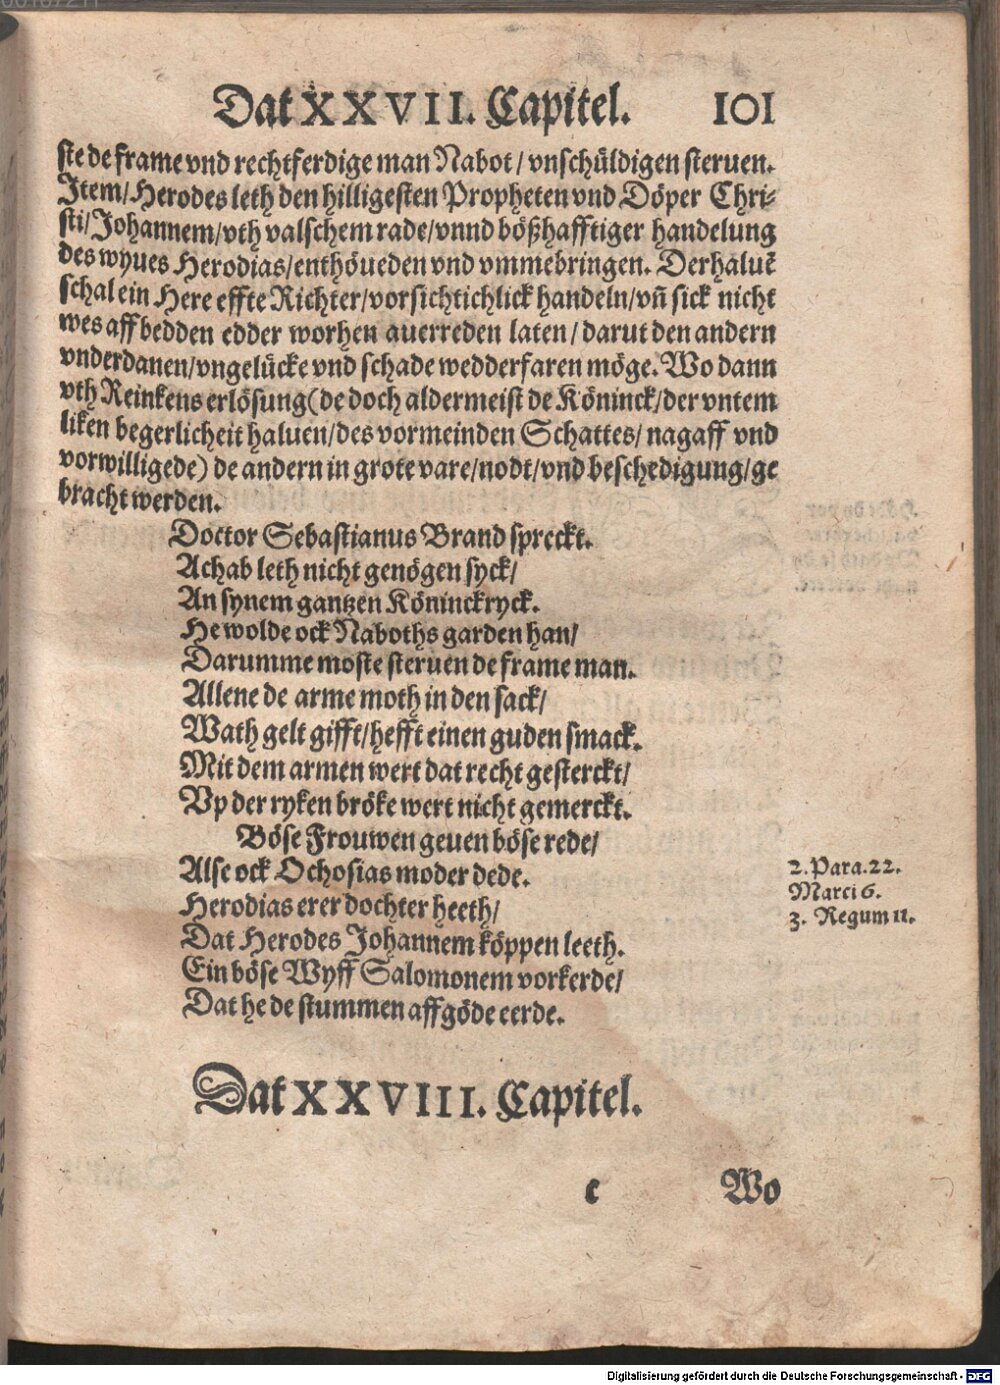 Dat XXVII. Capitel. 101
ste de frame vnd rechtferdige man Nabot / vnschüldigen steruen.
Item / Herodes leth den hilligesten Propheten vnd Döper Chri-
sti / Johannem / vth valschem rade / vnnd bößhafftiger handelung
des wyues Herodias / enthöueden vnd vmmebringen. Derhaluē
schal ein Here effte Richter / vorsichtichlick handeln / vñ sick nicht
wes affbedden edder worhen auerreden laten / darut den andern
vnderdanen / vngelücke vnd schade wedderfaren möge. Wo dann
vth Reinkens erlösung (de doch aldermeist de Köninck / der vntem
liken begerlicheit haluen / des vormeinden Schattes / nagaff vnd
vorwilligede) de andern in grote vare / nodt / vnd beschedigung / ge
bracht werden.
Doctor Sebastianus Brand spreckt.
Achab leth nicht genögen syck /
An synem gantzen Köninckryck.
He wolde ock Naboths garden han /
Darumme moste steruen de frame man.
Allene de arme moth in den sack /
Wath gelt gifft / hefft einen guden smack.
Mit dem armen wert dat recht gesterckt /
Vp der ryken bröke wert nicht gemerckt.
Böse Frouwen geuen böse rede /
Alse ock Ochosias moder dede.
Herodias erer dochter heeth /
Dat Herodes Johannem köppen leeth.
Ein böse Wyff Salomonem vorkerde /
Dat he de stummen affgöde eerde.
2. Para. 22.
Marci 6.
3. Regum 11.
Dat XXVIII. Capitel.
c Wo
Digitalisierung gefördert durch die Deutsche Forschungsgemeinschaft - DFG